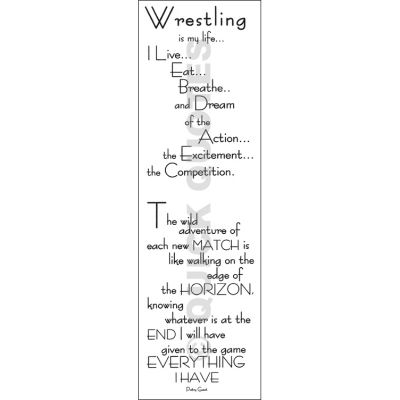 Wrestling
is my life...
I Live...
Eat...
Breathe...
and Dream
of the
Action...
the Excitement...
the Competition.
The wild
adventure of
each new MATCH is
like walking on the
edge of
the HORIZON,
knowing
whatever is at the
END I will have
given to the game
EVERYTHING
I HAVE
© QUICK QUOTES